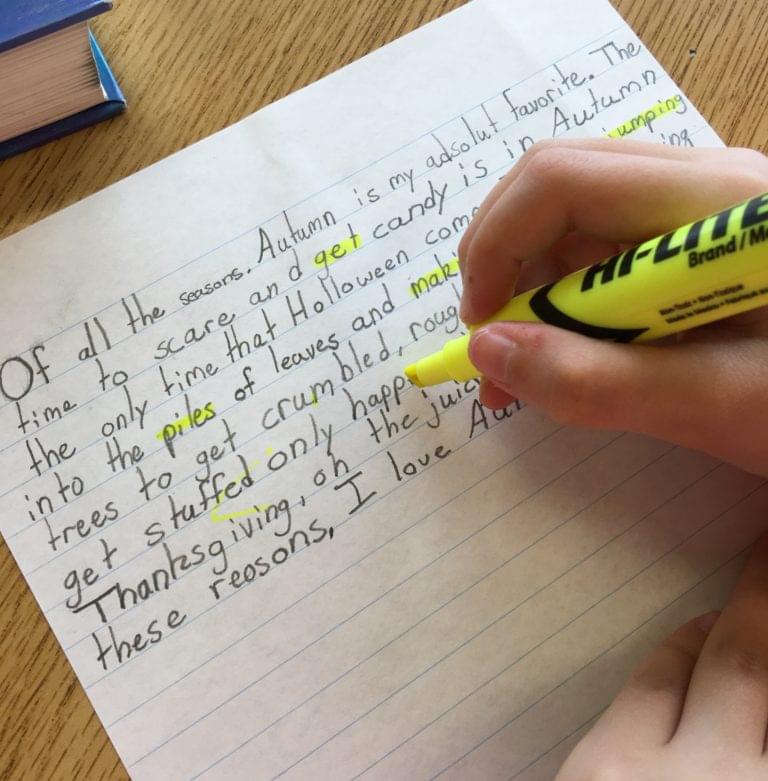 Of all the seasons. Autumn is my adsolut favorite. The
time to scare and get candy is in Autumn
the only time that Halloween com jumping
into the piles of leaves and maki ing
trees to get crumbled, roug
get stuffed only happ
Thanksgiving, oh the juic
these reasons, I love Au
HI-LITE
Brand/Ma
Non-Toxic • Non Toxique